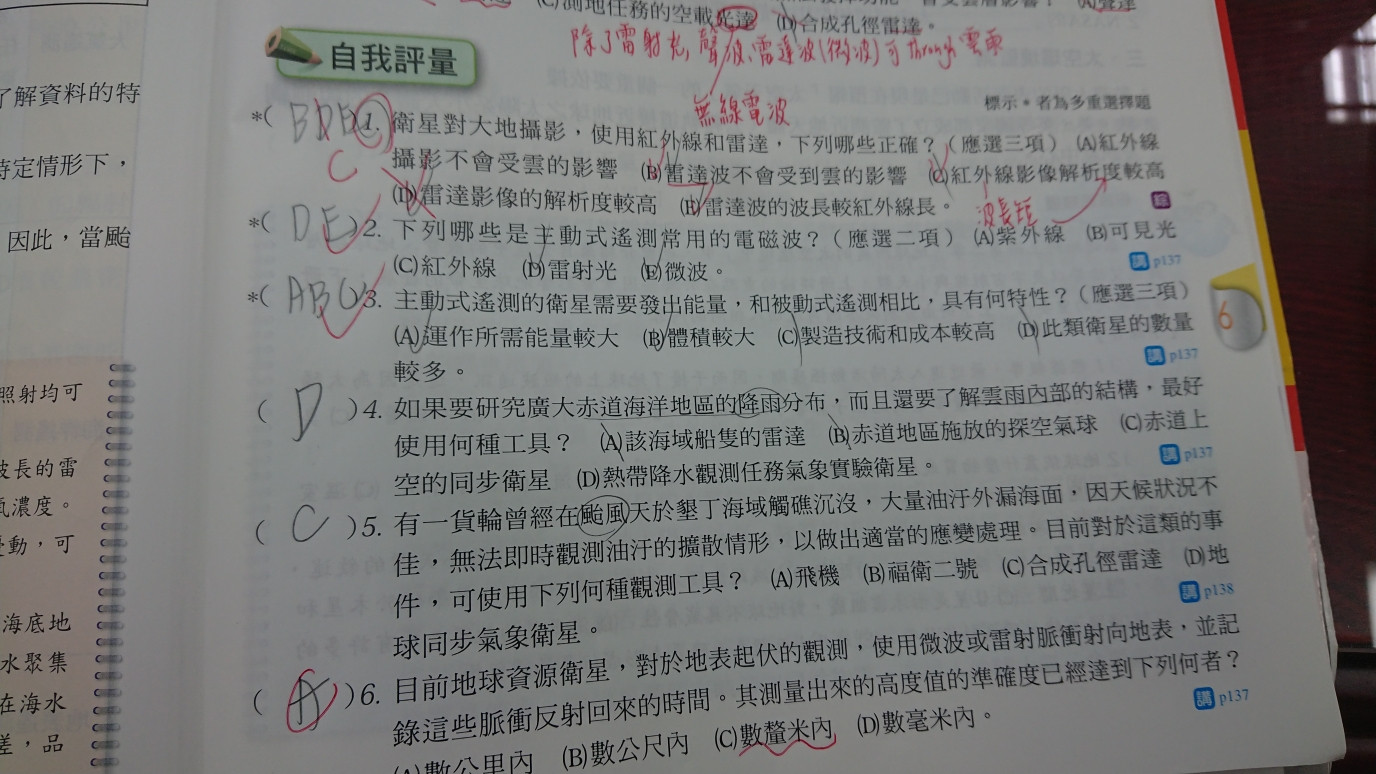 (C)測地任務的空載光達 (D)合成孔徑雷達。
除了雷射光,聲波、雷達波(微波)可 through 雲雨
無線電波
自我評量
標示*者為多重選擇題
*( BDE )1. 衛星對大地攝影,使用紅外線和雷達,下列哪些正確?(應選三項) (A)紅外線
C
攝影不會受雲的影響 (B)雷達波不會受到雲的影響 (C)紅外線影像解析度較高
(D)雷達影像的解析度較高 (E)雷達波的波長較紅外線長。 綜
波長短
*( DE )2. 下列哪些是主動式遙測常用的電磁波?(應選二項) (A)紫外線 (B)可見光
(C)紅外線 (D)雷射光 (E)微波。 講 p137
*( ABC )3. 主動式遙測的衛星需要發出能量,和被動式遙測相比,具有何特性?(應選三項)
(A)運作所需能量較大 (B)體積較大 (C)製造技術和成本較高 (D)此類衛星的數量
較多。 講 p137
( D )4. 如果要研究廣大赤道海洋地區的降雨分布,而且還要了解雲雨內部的結構,最好
使用何種工具? (A)該海域船隻的雷達 (B)赤道地區施放的探空氣球 (C)赤道上
空的同步衛星 (D)熱帶降水觀測任務氣象實驗衛星。 講 p137
( C )5. 有一貨輪曾經在颱風天於墾丁海域觸礁沉沒,大量油汙外漏海面,因天候狀況不
佳,無法即時觀測油汙的擴散情形,以做出適當的應變處理。目前對於這類的事
件,可使用下列何種觀測工具? (A)飛機 (B)福衛二號 (C)合成孔徑雷達 (D)地
球同步氣象衛星。 講 p138
( A )6. 目前地球資源衛星,對於地表起伏的觀測,使用微波或雷射脈衝射向地表,並記
錄這些脈衝反射回來的時間。其測量出來的高度值的準確度已經達到下列何者?
(A)數公里內 (B)數公尺內 (C)數釐米內 (D)數毫米內。 講 p137
6
了解資料的特
特定情形下,
因此,當颱
照射均可
波長的雷
氣濃度。
擾動,可
海底地
水聚集
在海水
差,品